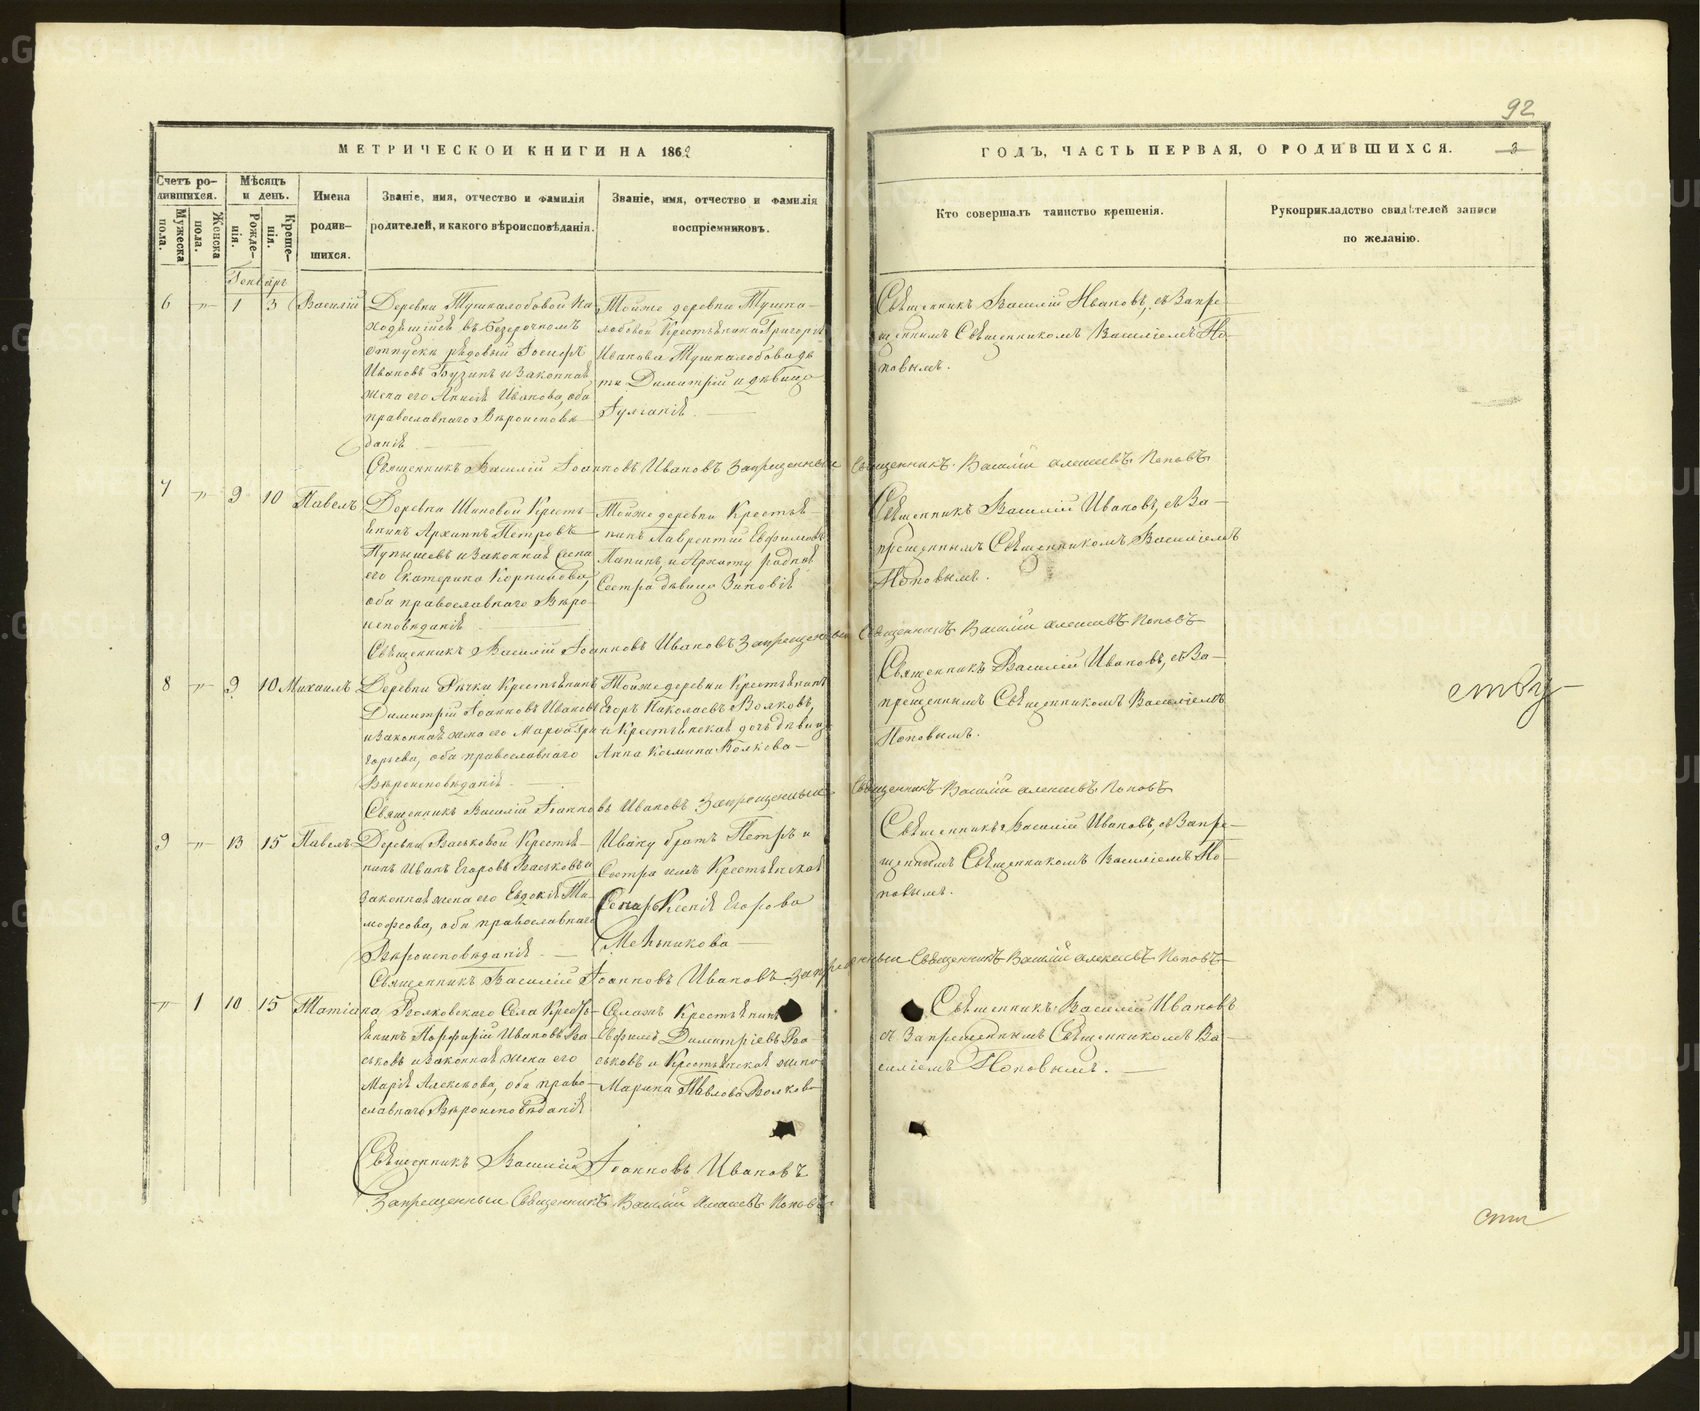 92
МЕТРИЧЕСКОЙ КНИГИ НА 1862
ГОДЪ, ЧАСТЬ ПЕРВАЯ, О РОДИВШИХСЯ.
3
Счетъ ро-
дившихся.
Мужеска
пола.
Женска
пола.
Мѣсяцъ
и день.
Рожде-
нія.
Креще-
нія.
Имена
родив-
шихся.
Званіе, имя, отчество и фамилія
родителей, и какого вѣроисповѣданія.
Званіе, имя, отчество и фамилія
воспріемниковъ.
Кто совершалъ таинство крещенія.
Рукоприкладство свидѣтелей записи
по желанію.
Генварь
6 -"- 1 3 Василій
Деревни Тушкалобовой на
ходящійся въ безсрочномъ
отпуску рядовый Іосифъ
Ивановъ Бузинъ и законная
жена его Анисія Иванова, оба
православнаго Вѣроисповѣ
данія
Тойже деревни Тушка-
лобовой Крестьянина Григорія
Иванова Тушкалобова дѣ
ти Димитрій и дѣвица
Іуліанія.
Священникъ Василій Ивановъ, съ Запре-
щеннымъ Священникомъ Василіемъ По-
повымъ.
Священникъ Василій Іоанновъ Ивановъ Запрещенный Священникъ Василій Алексеевъ Поповъ
7 -"- 9 10 Павелъ
Деревни Шиповой Кресть-
янинъ Архиппъ Петровъ
Пупышевъ и законная жена
его Екатерина Корнилова,
оба православнаго Вѣро-
исповѣданія
Тойже деревни Крестья-
нинъ Лаврентій Евфимовъ
Папинъ, и Архиппу родная
Сестра дѣвица Зиновія
Священникъ Василій Ивановъ, съ За-
прещеннымъ Священникомъ Василіемъ
Поповымъ.
Священникъ Василій Іоанновъ Ивановъ Запрещенный Священникъ Василій Алексеевъ Поповъ
8 -"- 9 10 Михаилъ
Деревни Рѣчки Крестьянинъ
Димитрій Іоанновъ Ивановъ
и законная жена его Марѳа Гри
горьева, оба православнаго
Вѣроисповѣданія
Тойже деревни Крестьянинъ
Егоръ Николаевъ Волковъ,
и Крестьянская дочь дѣвица
Анна Космина Волкова
Священникъ Василій Ивановъ, съ За-
прещеннымъ Священникомъ Василіемъ
Поповымъ.
Священникъ Василій Іоанновъ Ивановъ Запрещенный Священникъ Василій Алексеевъ Поповъ
9 -"- 13 15 Павелъ
Деревни Васьковой Крестья-
нинъ Иванъ Егоровъ Васьковъ и
законная жена его Евдокія Ти-
мофеева, оба православнаго
Вѣроисповѣданія
Ивану братъ Петръ и
Сестра имъ Крестьянская
жена Ксенія Егорова
Мельникова
Священникъ Василій Ивановъ, съ Запре-
щеннымъ Священникомъ Василіемъ По-
повымъ.
Священникъ Василій Іоанновъ Ивановъ Запрещенный Священникъ Василій Алексеевъ Поповъ
-"- 1 10 15 Татіана
Волковскаго Села Кресть-
янинъ Порфирій Ивановъ Ва-
ськовъ и законная жена его
Марія Алексѣева, оба право-
славнаго Вѣроисповѣданія
Селахъ Крестьянинъ
Евфимъ Димитріевъ Ва-
ськовъ и Крестьянская жена
Марина Павлова Волкова
Священникъ Василій Ивановъ
съ Запрещеннымъ Священникомъ Ва-
силіемъ Поповымъ.
Священникъ Василій Іоанновъ Ивановъ
Запрещенный Священникъ Василій Алексеевъ Поповъ
METRIKI.GASO-URAL.RU